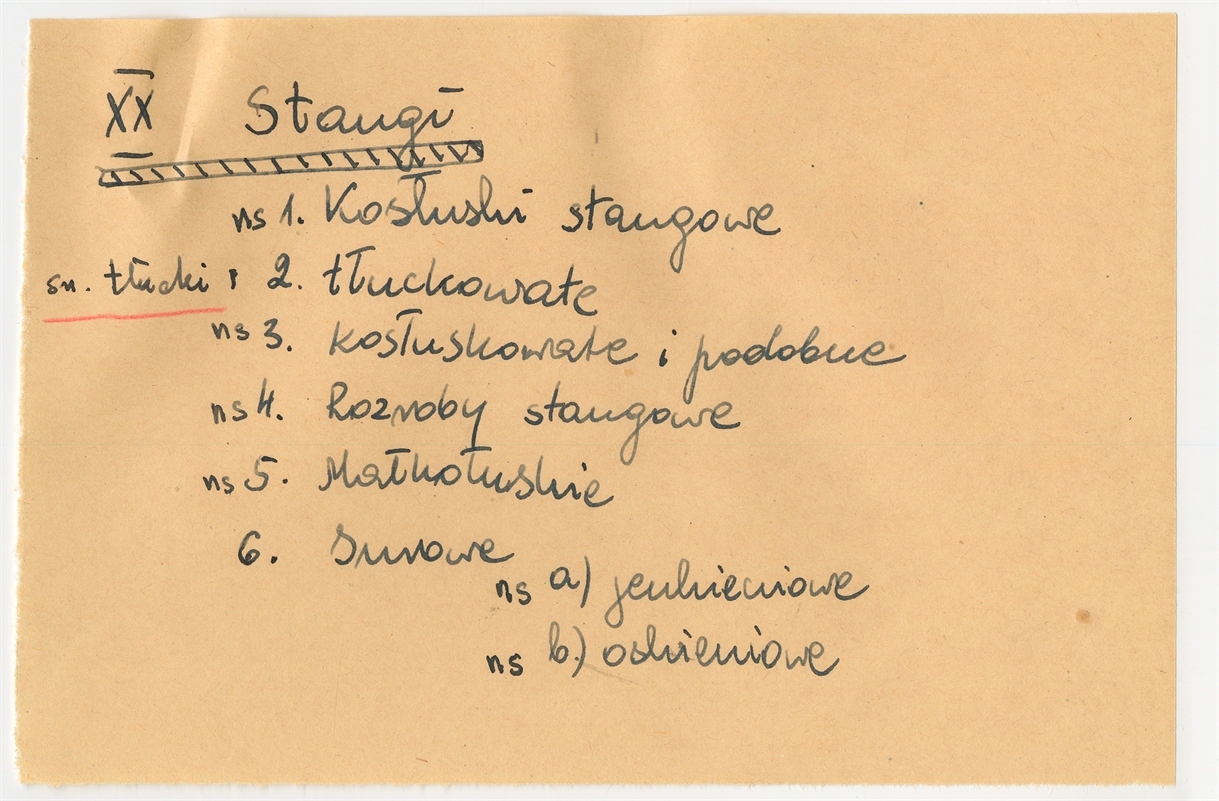 XX Stangi
ns 1. Kosłuski stangowe
sn. tłucki, 2. tłuckowate
ns 3. kosłuskowate i podobne
ns 4. Rozroby stangowe
ns 5. Małkołuskie
6. Surowe
ns a) jenkieniowe
ns b.) oskieniowe